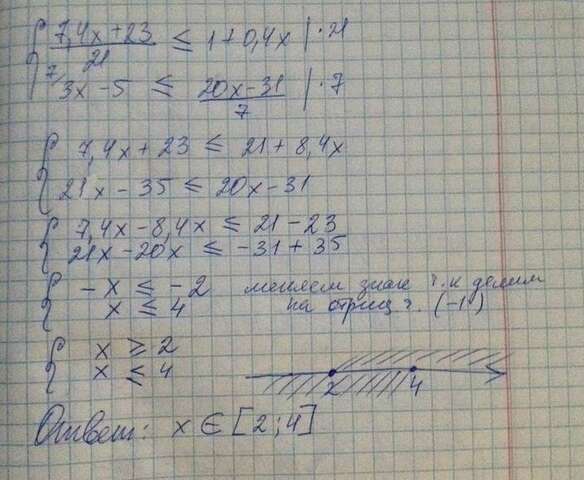 7,4x+23/21 ≤ 1+0,4x |·21
3x-5 ≤ 20x-31/7 |·7
7,4x+23 ≤ 21+8,4x
21x-35 ≤ 20x-31
7,4x-8,4x ≤ 21-23
21x-20x ≤ -31+35
-x ≤ -2 меняем знак т.к делим
x ≤ 4 на отриц ч. (-1)
x ≥ 2
x ≤ 4
2 4
Ответ: x ∈ [2;4]